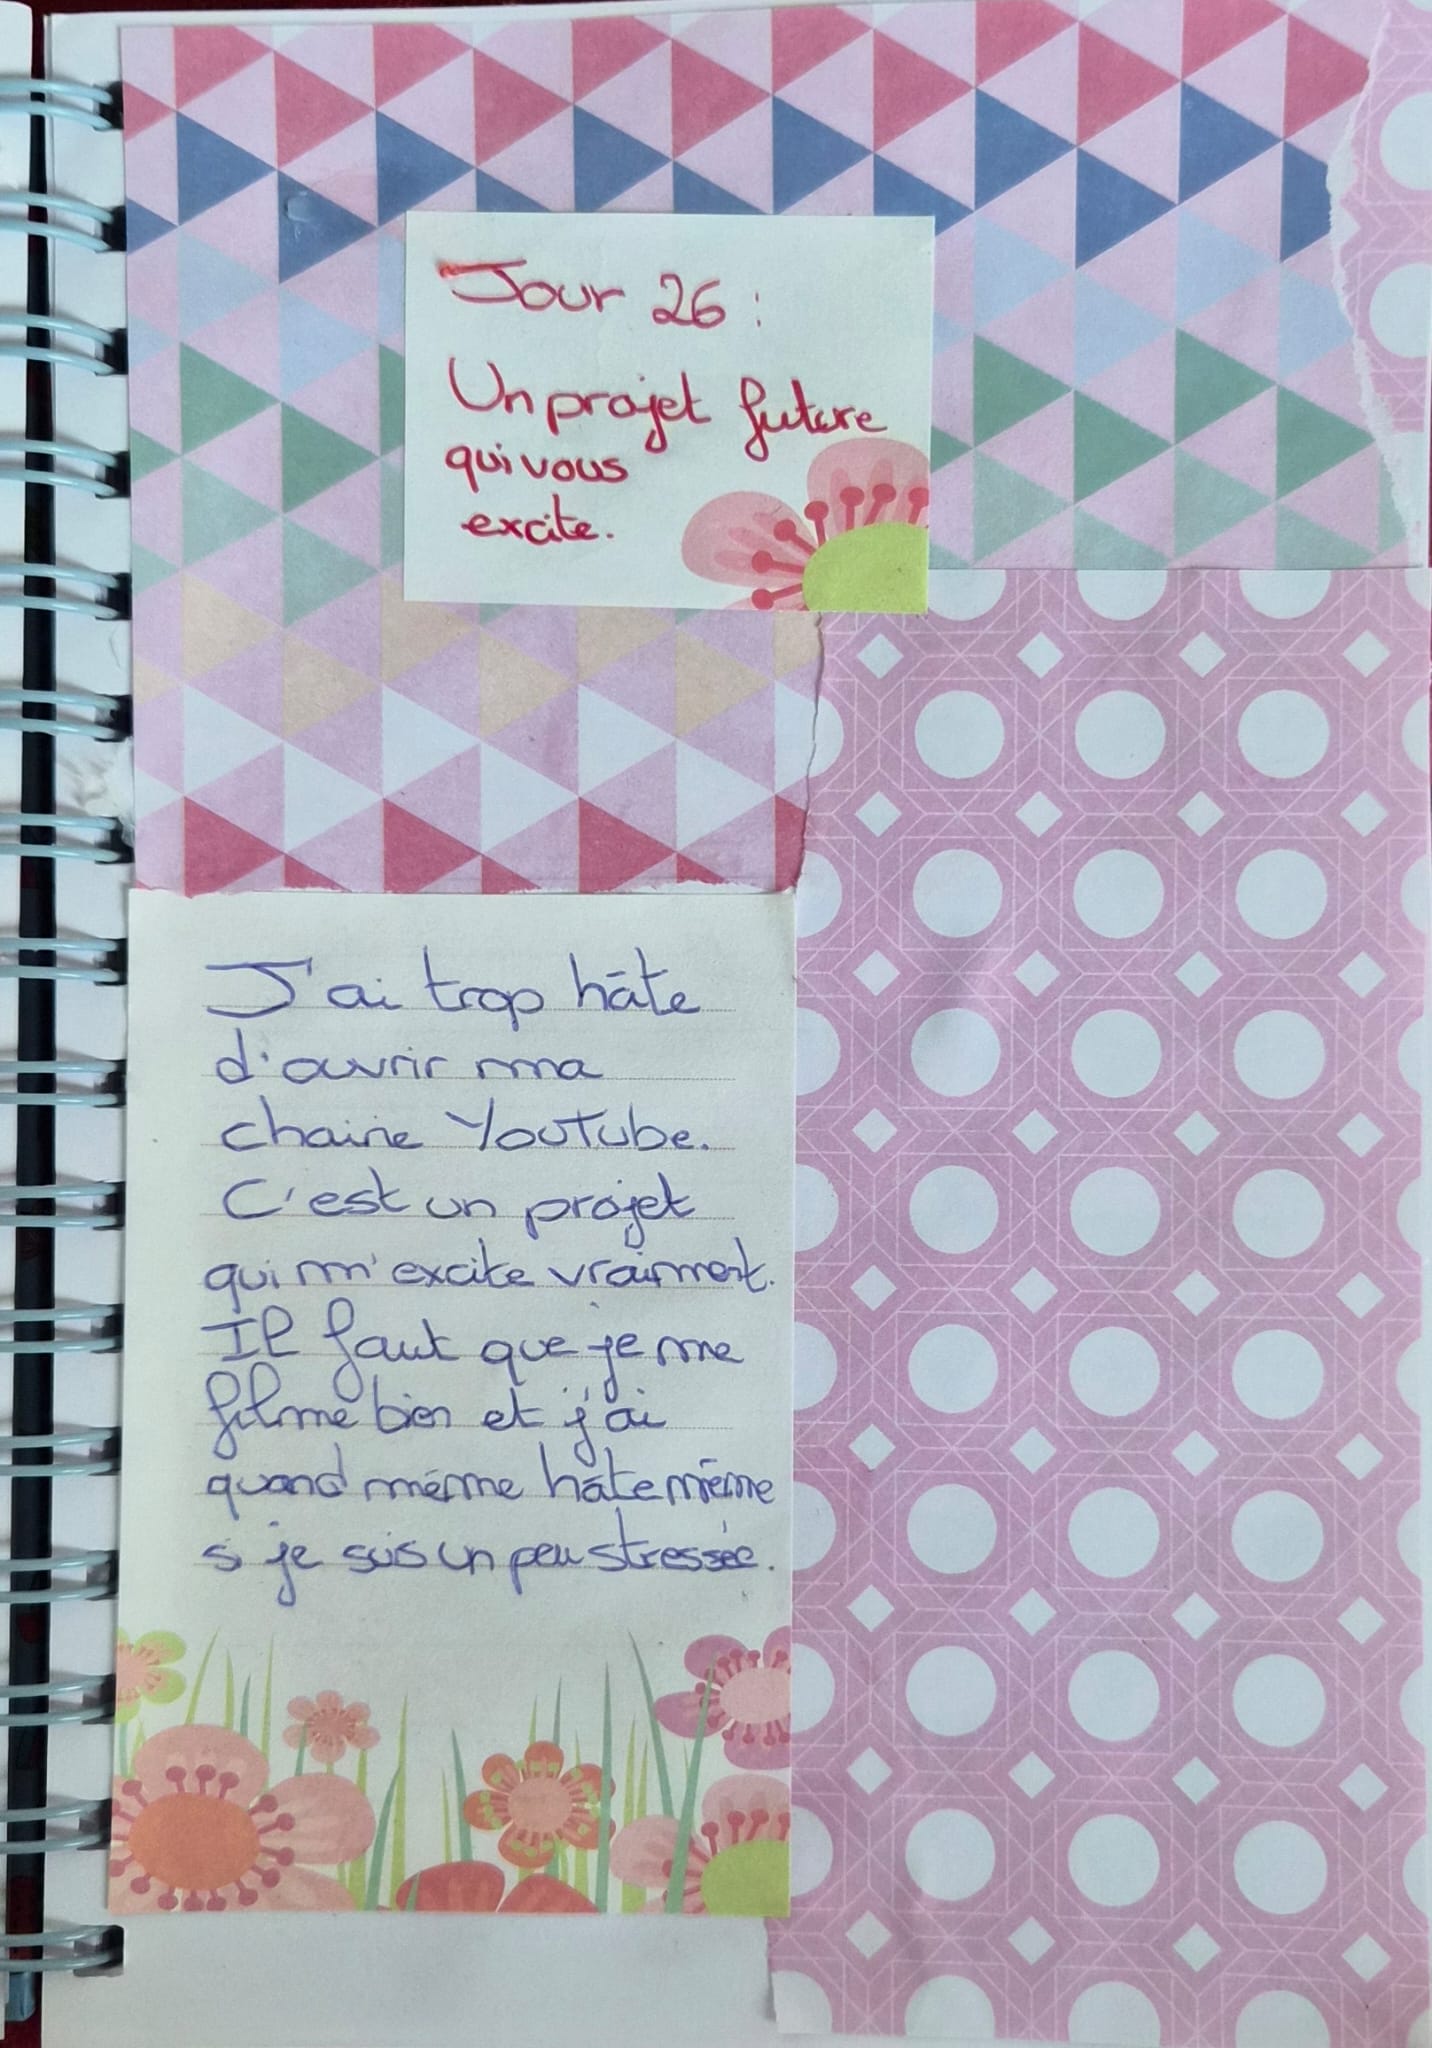 Jour 26 :
Un projet future
qui vous
excite.
J'ai trop hâte
d'ouvrir ma
chaine YouTube.
C'est un projet
qui m'excite vraiment.
Il faut que je me
filme bien et j'ai
quand même hâte même
si je suis un peu stressée.